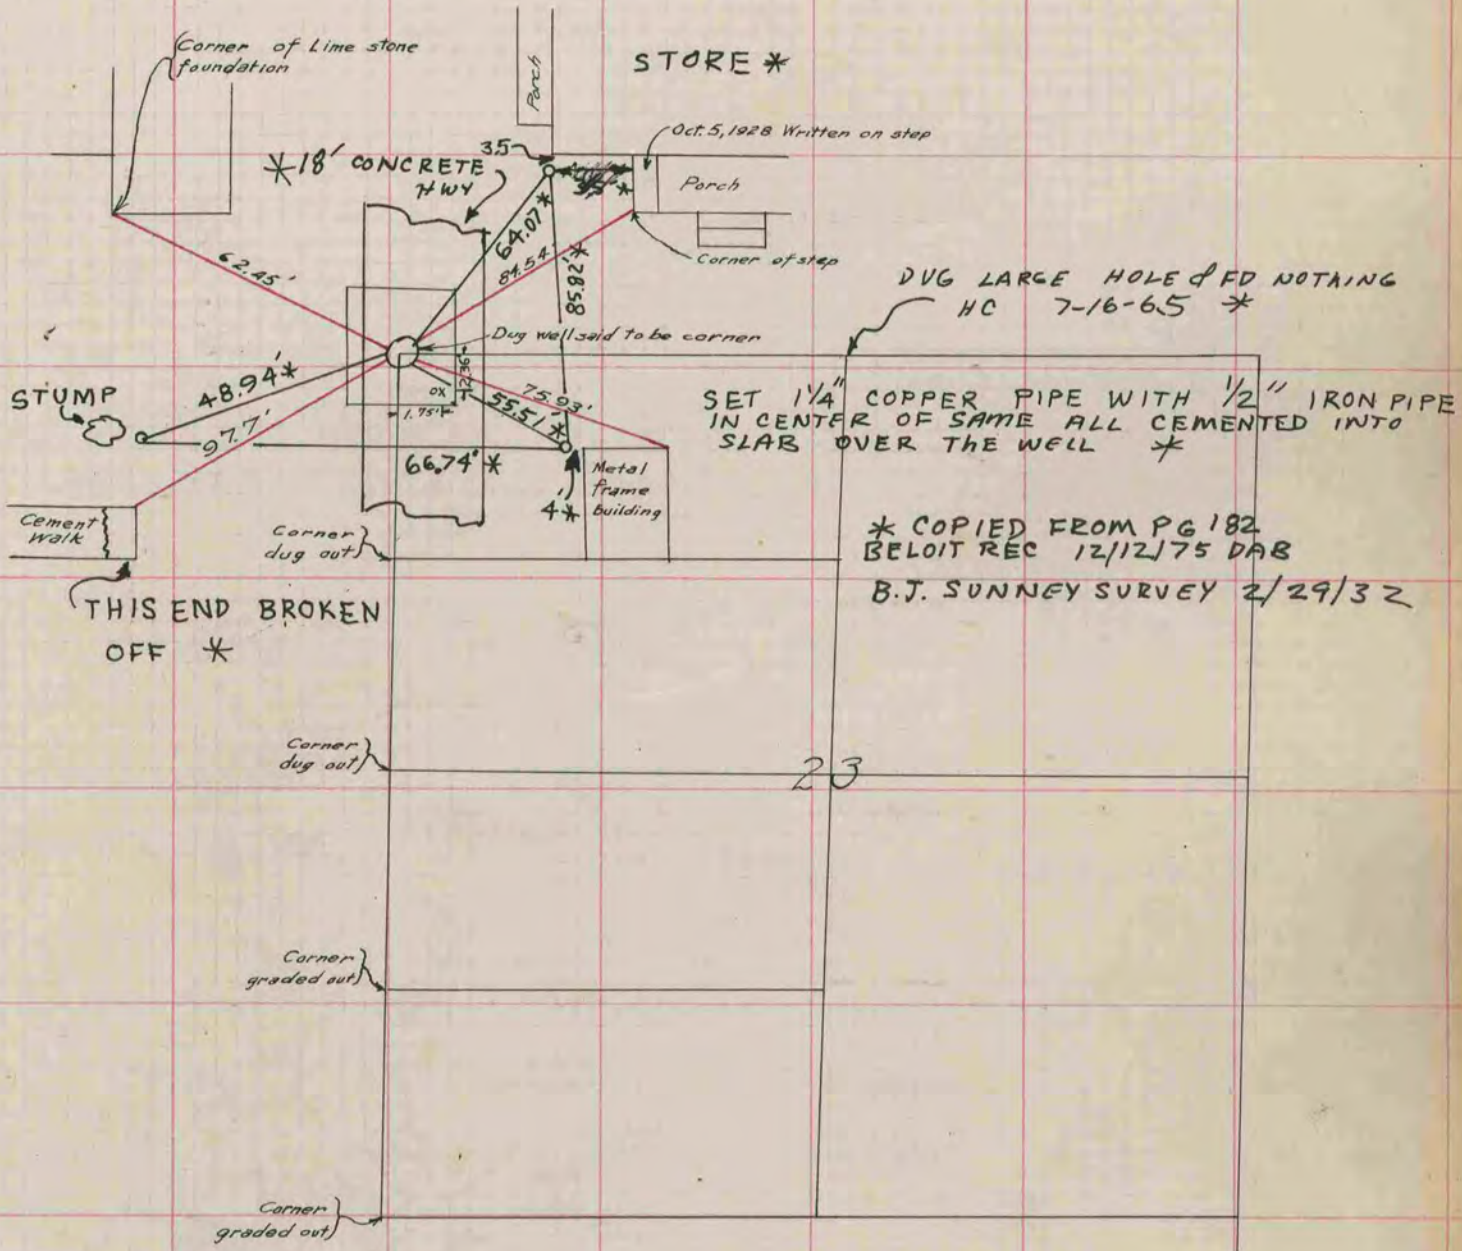 Corner of Lime stone
foundation
Porch
STORE *
Oct. 5, 1928 Written on step
* 18' CONCRETE
HWY
3.5
Porch
64.07' *
84.54'
85.82' *
Corner of step
62.45'
DUG LARGE HOLE & FD NOTHING
HC 7-16-65 *
Dug well said to be corner
STUMP
48.94' *
97.7'
OX
2.36'
1.75'
55.51' *
75.93'
66.74' *
4' *
SET 1 1/4" COPPER PIPE WITH 1/2" IRON PIPE
IN CENTER OF SAME ALL CEMENTED INTO
SLAB OVER THE WELL *
Metal
frame
building
Cement
Walk
Corner
dug out
* COPIED FROM PG 182
BELOIT REC 12/12/75 DAB
B.J. SUNNEY SURVEY 2/29/32
THIS END BROKEN
OFF *
Corner
dug out
23
Corner
graded out
Corner
graded out